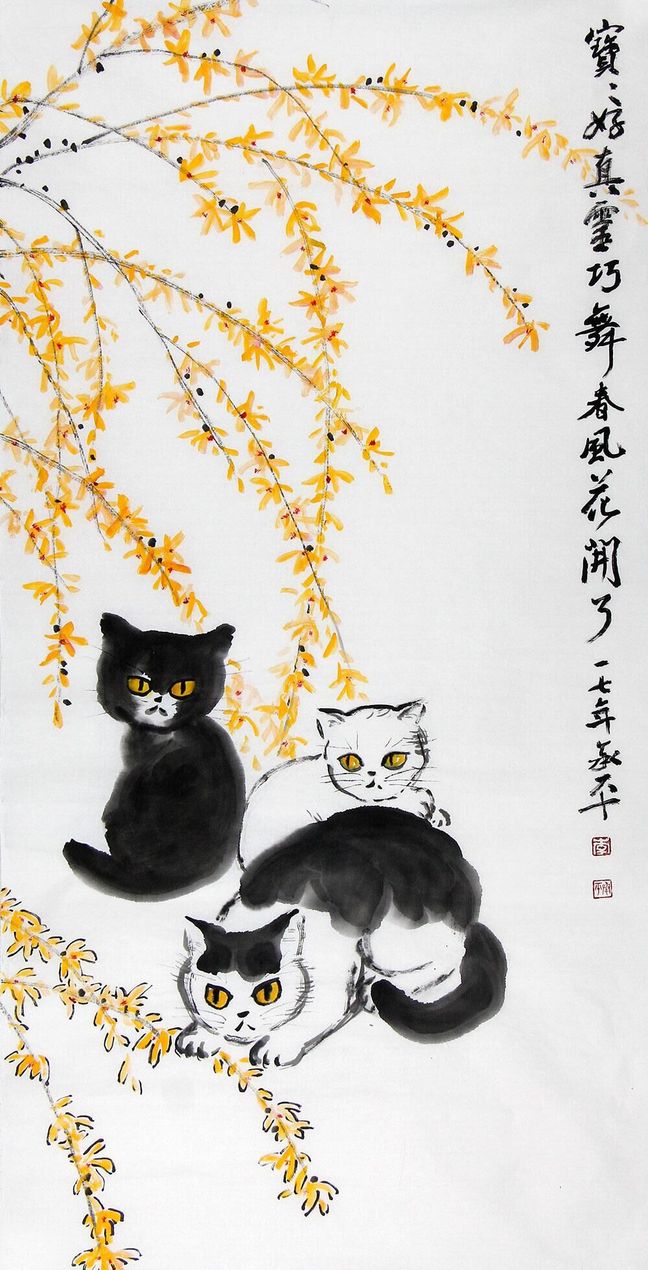 寶〻好真靈巧舞春風花開了 一七年